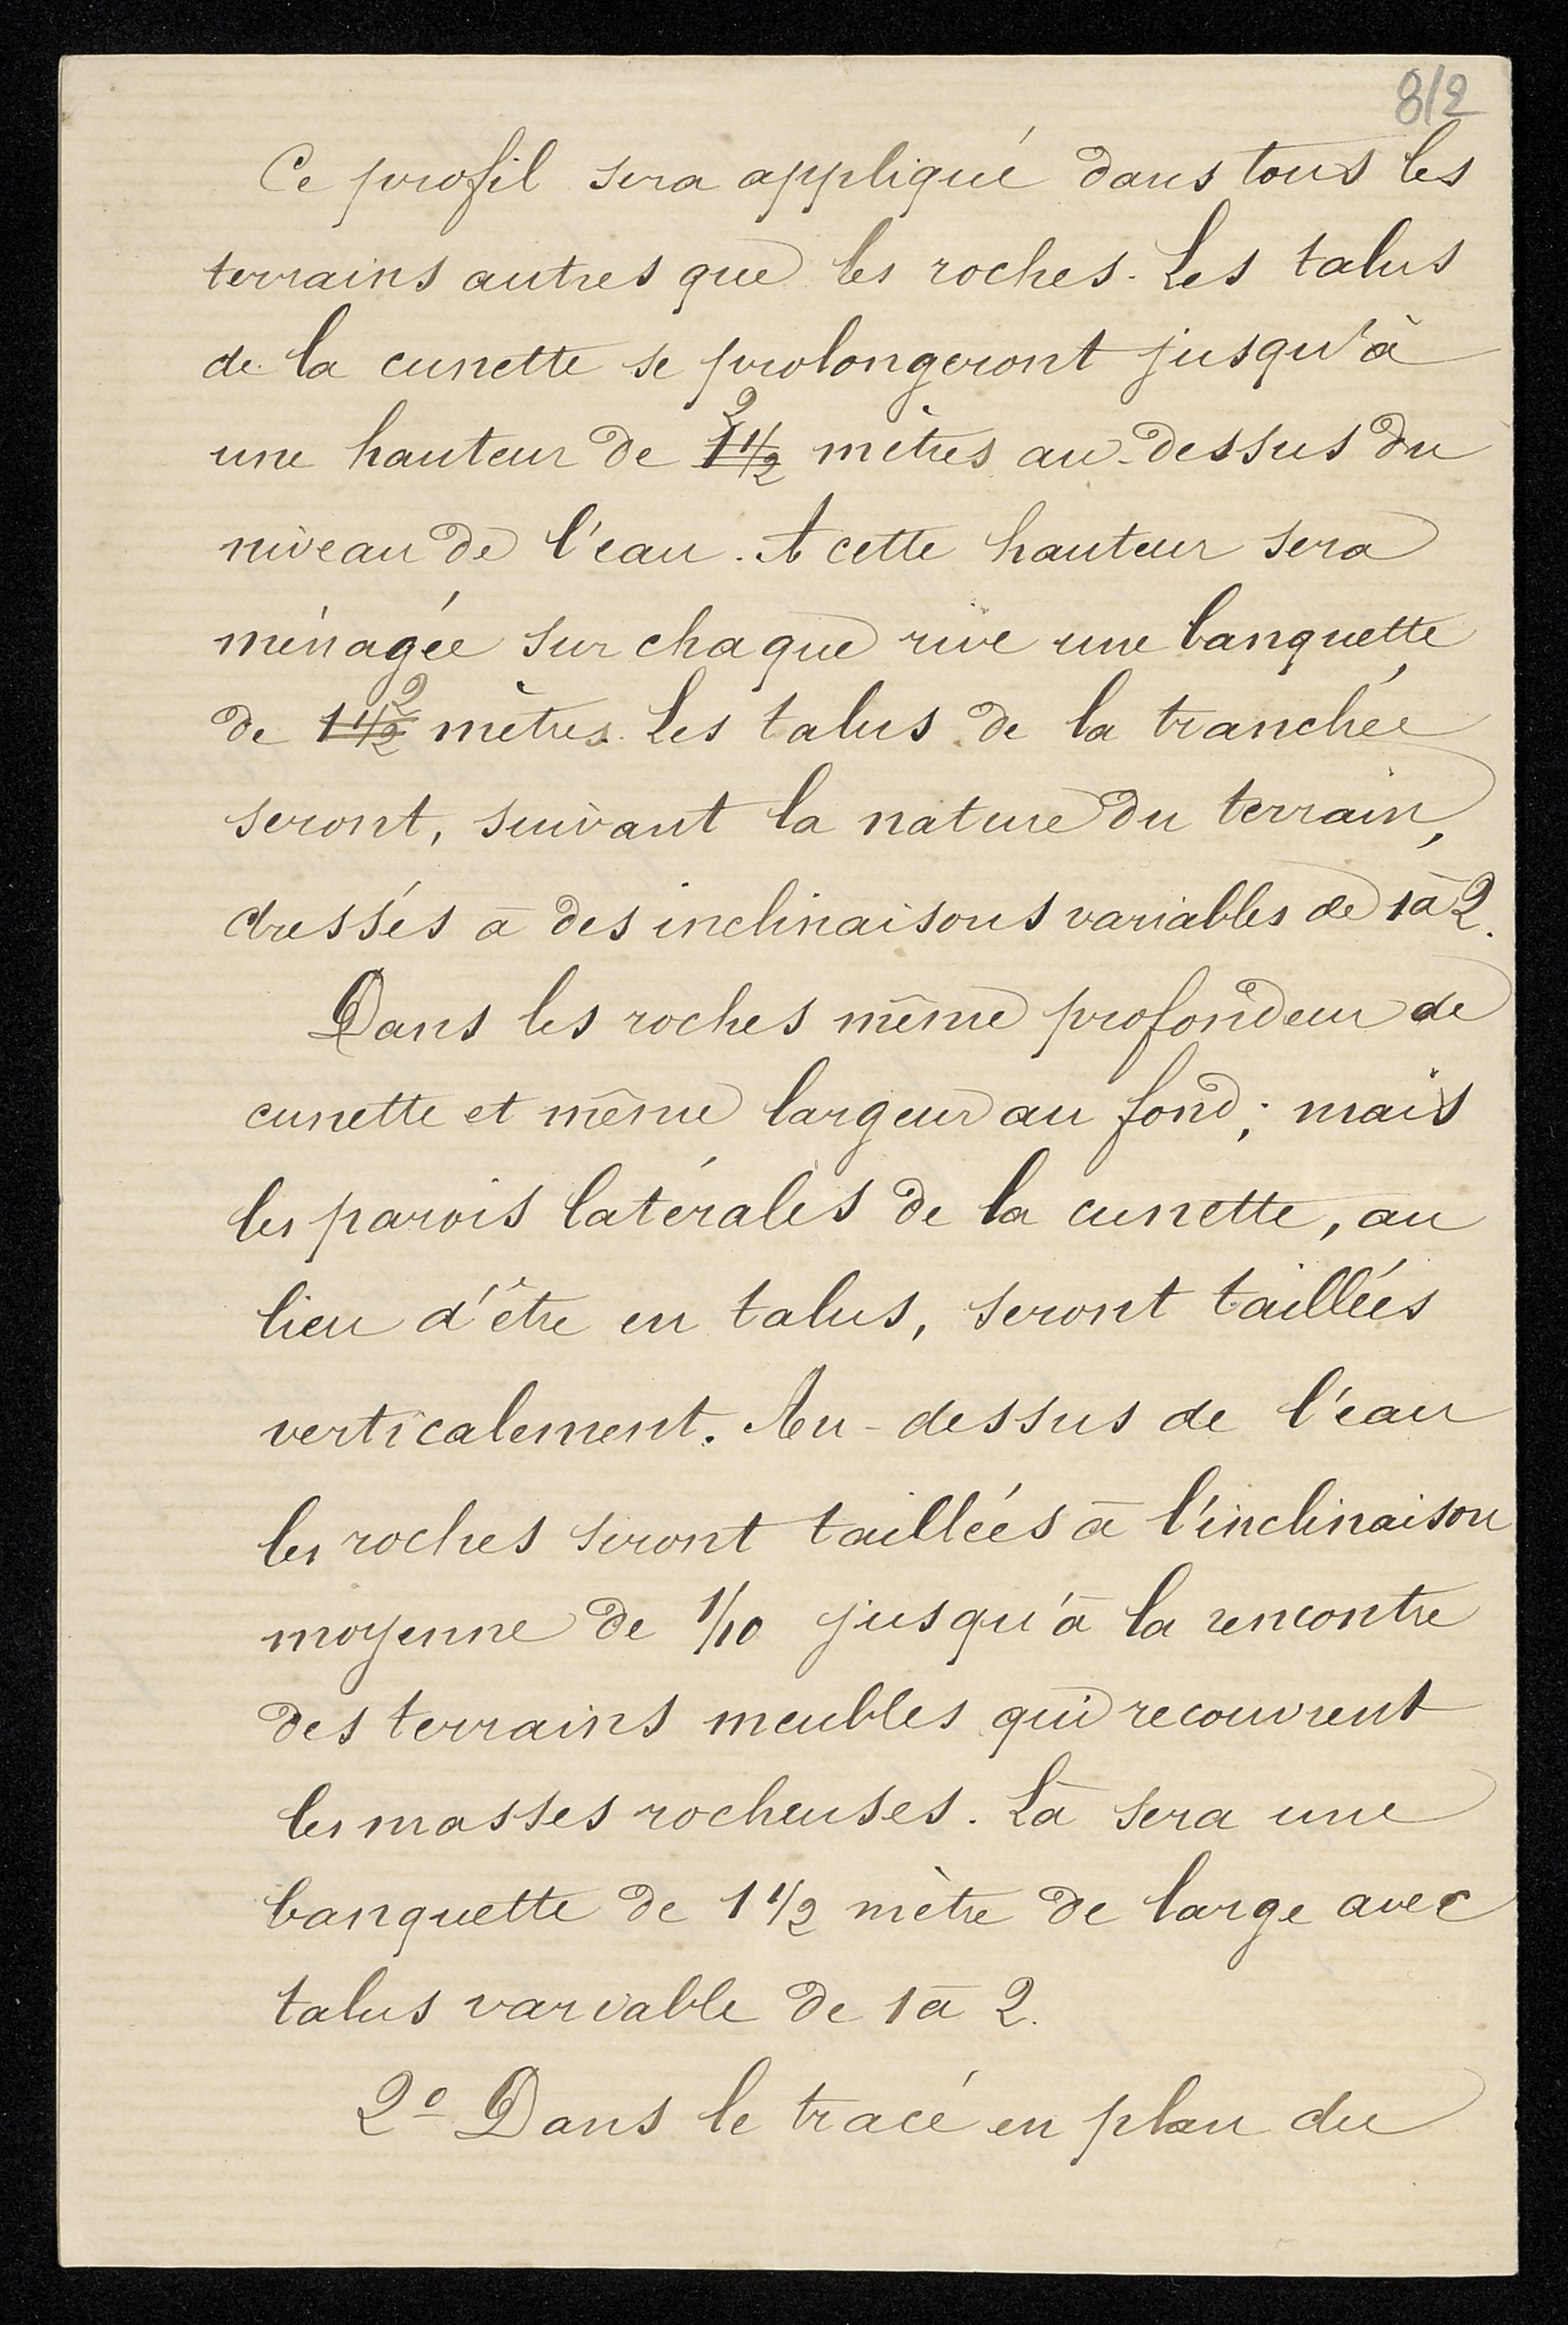 8/2
Ce profil sera appliqué dans tous les
terrains autres que les roches. Les talus
de la cunette se prolongeront jusqu'à
2
une hauteur de 1 1/2 mètres au-dessus du
niveau de l'eau. A cette hauteur sera
ménagée sur chaque rive une banquette
2
de 1 1/2 mètres. Les talus de la tranchée
seront, suivant la nature du terrain,
dressés à des inclinaisons variables de 1 à 2.
Dans les roches même profondeur de
cunette et même largeur au fond; mais
les parois latérales de la cunette, au
lieu d'être en talus, seront taillées
verticalement. Au-dessus de l'eau
les roches seront taillées à l'inclinaison
moyenne de 1/10 jusqu'à la rencontre
des terrains meubles qui recouvrent
les masses rocheuses. Là sera une
banquette de 1 1/2 mètre de large avec
talus variable de 1 à 2.
2º Dans le tracé en plan du